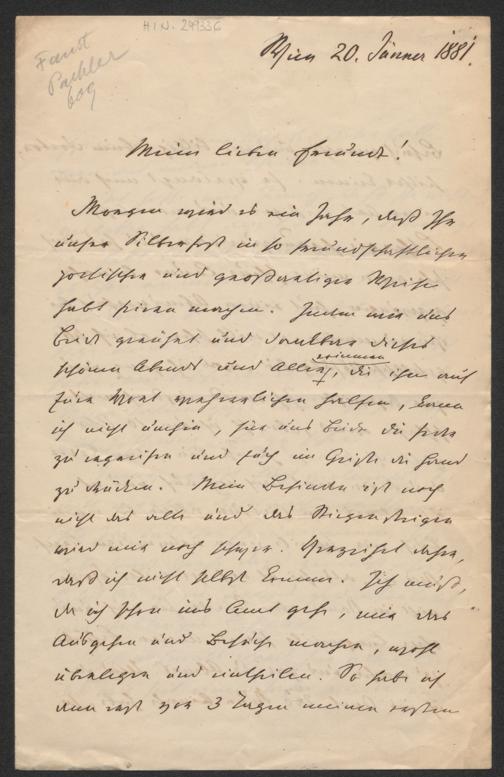 H I N. 249336
Faust
Pachler
Wien 20. Jänner 1881.
Mein lieber Freund!
Morgen wird es ein Jahr, daß Ihr
unser Silberfest in so freundschaftlicher
poetischer und großartiger Weise
habt feiern machen. Indem wir uns
Beide gerührt und dankbar dieses
schönen Abends und Aller erinnern, die ihn auf
Eure Wort verherrlichen halfen, kann
ich nicht umhin, für uns Beide die Feder
zu ergreifen und Euch im Geiste die Hand
zu drücken. Mein Befinden ist noch
nicht das alte und das Stiegensteigen
wird mir noch schwer. Verzeihet daher,
daß ich nicht selbst komme. Ich muß,
da ich schon ins Amt gehe, mir das
Ausgehen und Besuche machen, wohl
überlegen und eintheilen. So habe ich
denn erst vor 3 Tagen meinen ersten